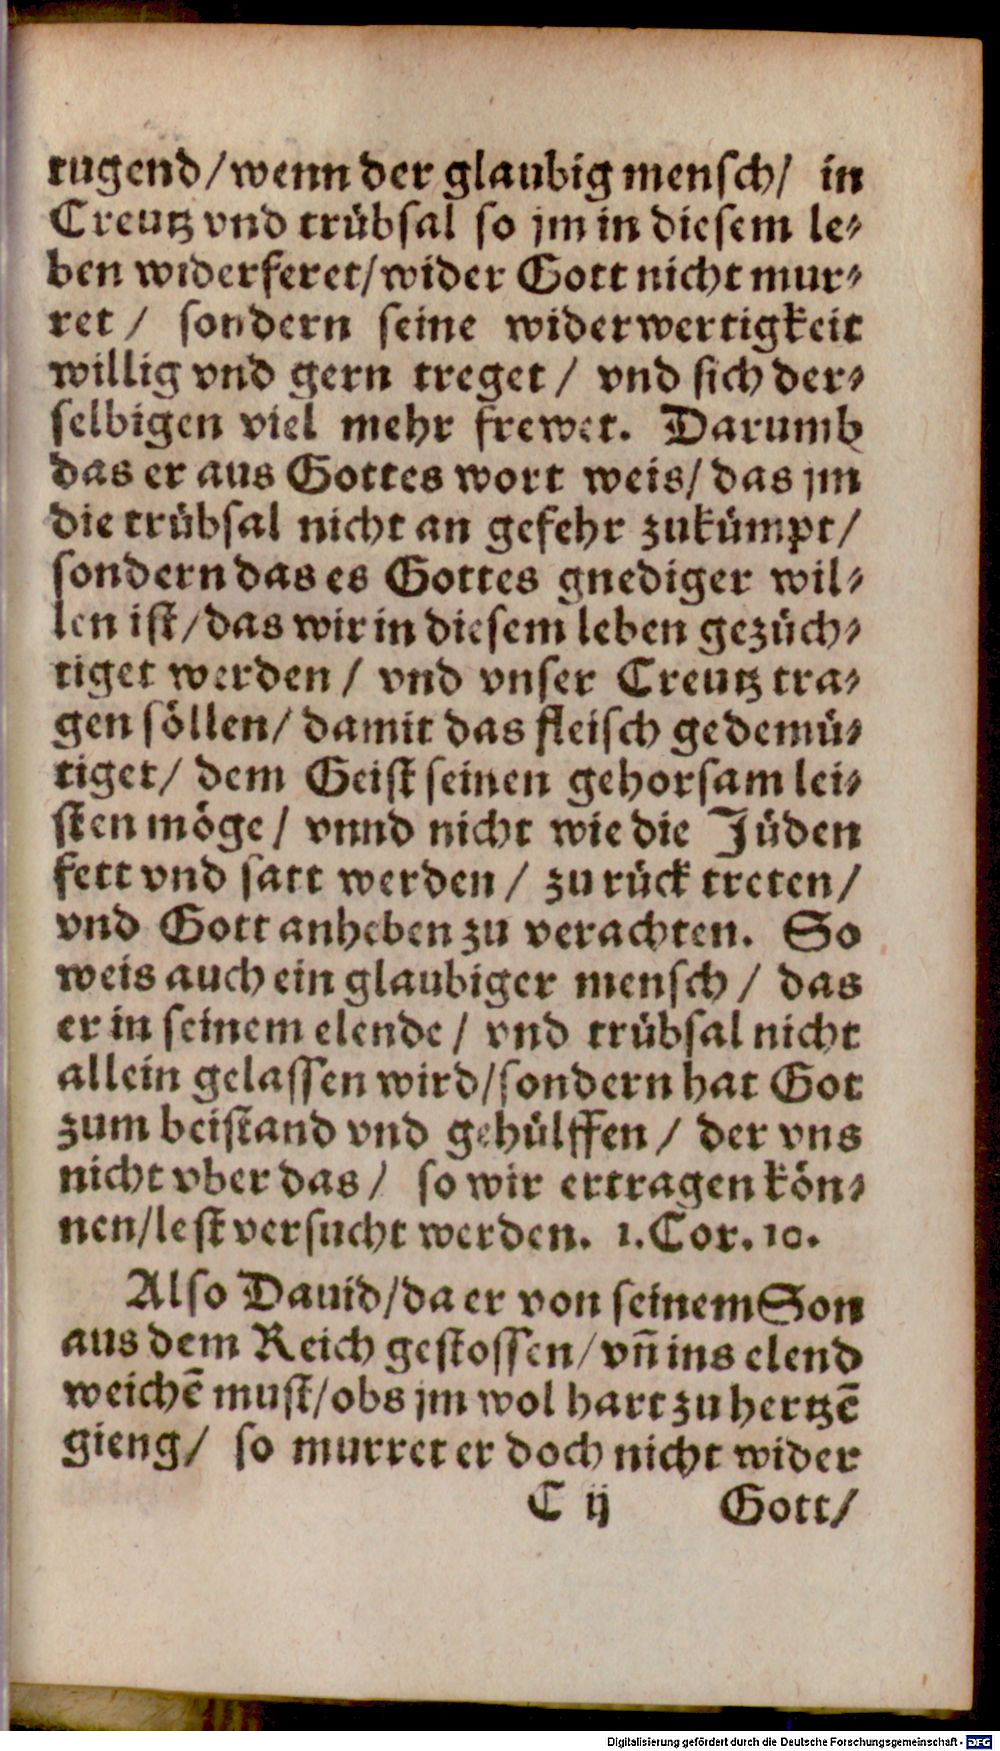 tugend/wenn der glaubig mensch/ in
Creutz vnd trübsal so jm in diesem le⸗
ben widerferet/wider Gott nicht mur⸗
ret/ sondern seine widerwertigkeit
willig vnd gern treget/ vnd sich der⸗
selbigen viel mehr frewet. Darumb
das er aus Gottes wort weis/das jm
die trübsal nicht an gefehr zukümpt/
sondern das es Gottes gnediger wil⸗
len ist/das wir in diesem leben gezüch⸗
tiget werden/ vnd vnser Creutz tra⸗
gen söllen/ damit das fleisch gedemü⸗
tiget/ dem Geist seinen gehorsam lei⸗
sten möge/ vnnd nicht wie die Jüden
fett vnd satt werden/ zu rück treten/
vnd Gott anheben zu verachten. So
weis auch ein glaubiger mensch/ das
er in seinem elende/ vnd trübsal nicht
allein gelassen wird/sondern hat Got
zum beistand vnd gehülffen/ der vns
nicht vber das/ so wir ertragen kön⸗
nen/lest versucht werden. 1. Cor. 10.
Also Dauid/da er von seinem Son
aus dem Reich gestossen/vñ ins elend
weichē must/obs jm wol hart zu hertzē
gieng/ so murret er doch nicht wider
C ij Gott/
Digitalisierung gefördert durch die Deutsche Forschungsgemeinschaft - DFG